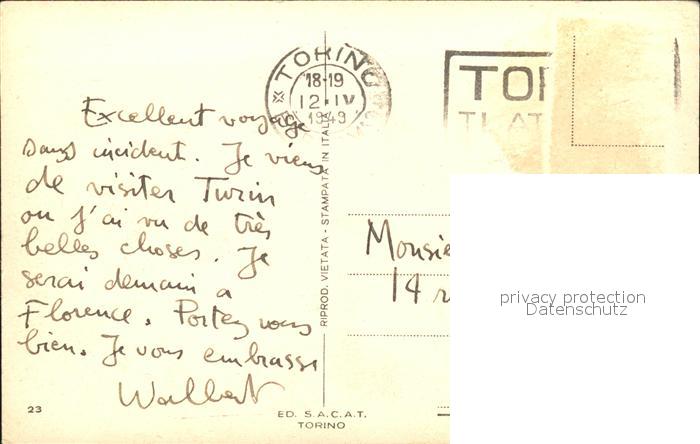 TORINO
18-19
12·IV
1949
TOR
TI AT
Excellent voyage
sans incident. Je viens
de visiter Turin
ou j'ai vu de très
belles choses. Je
serai demain a
Florence. Portez vous
bien. Je vous embrasse
Wallbert
RIPROD. VIETATA - STAMPATA IN ITALIA
Monsie
14 r
privacy protection
Datenschutz
23
ED. S.A.C.A.T.
TORINO